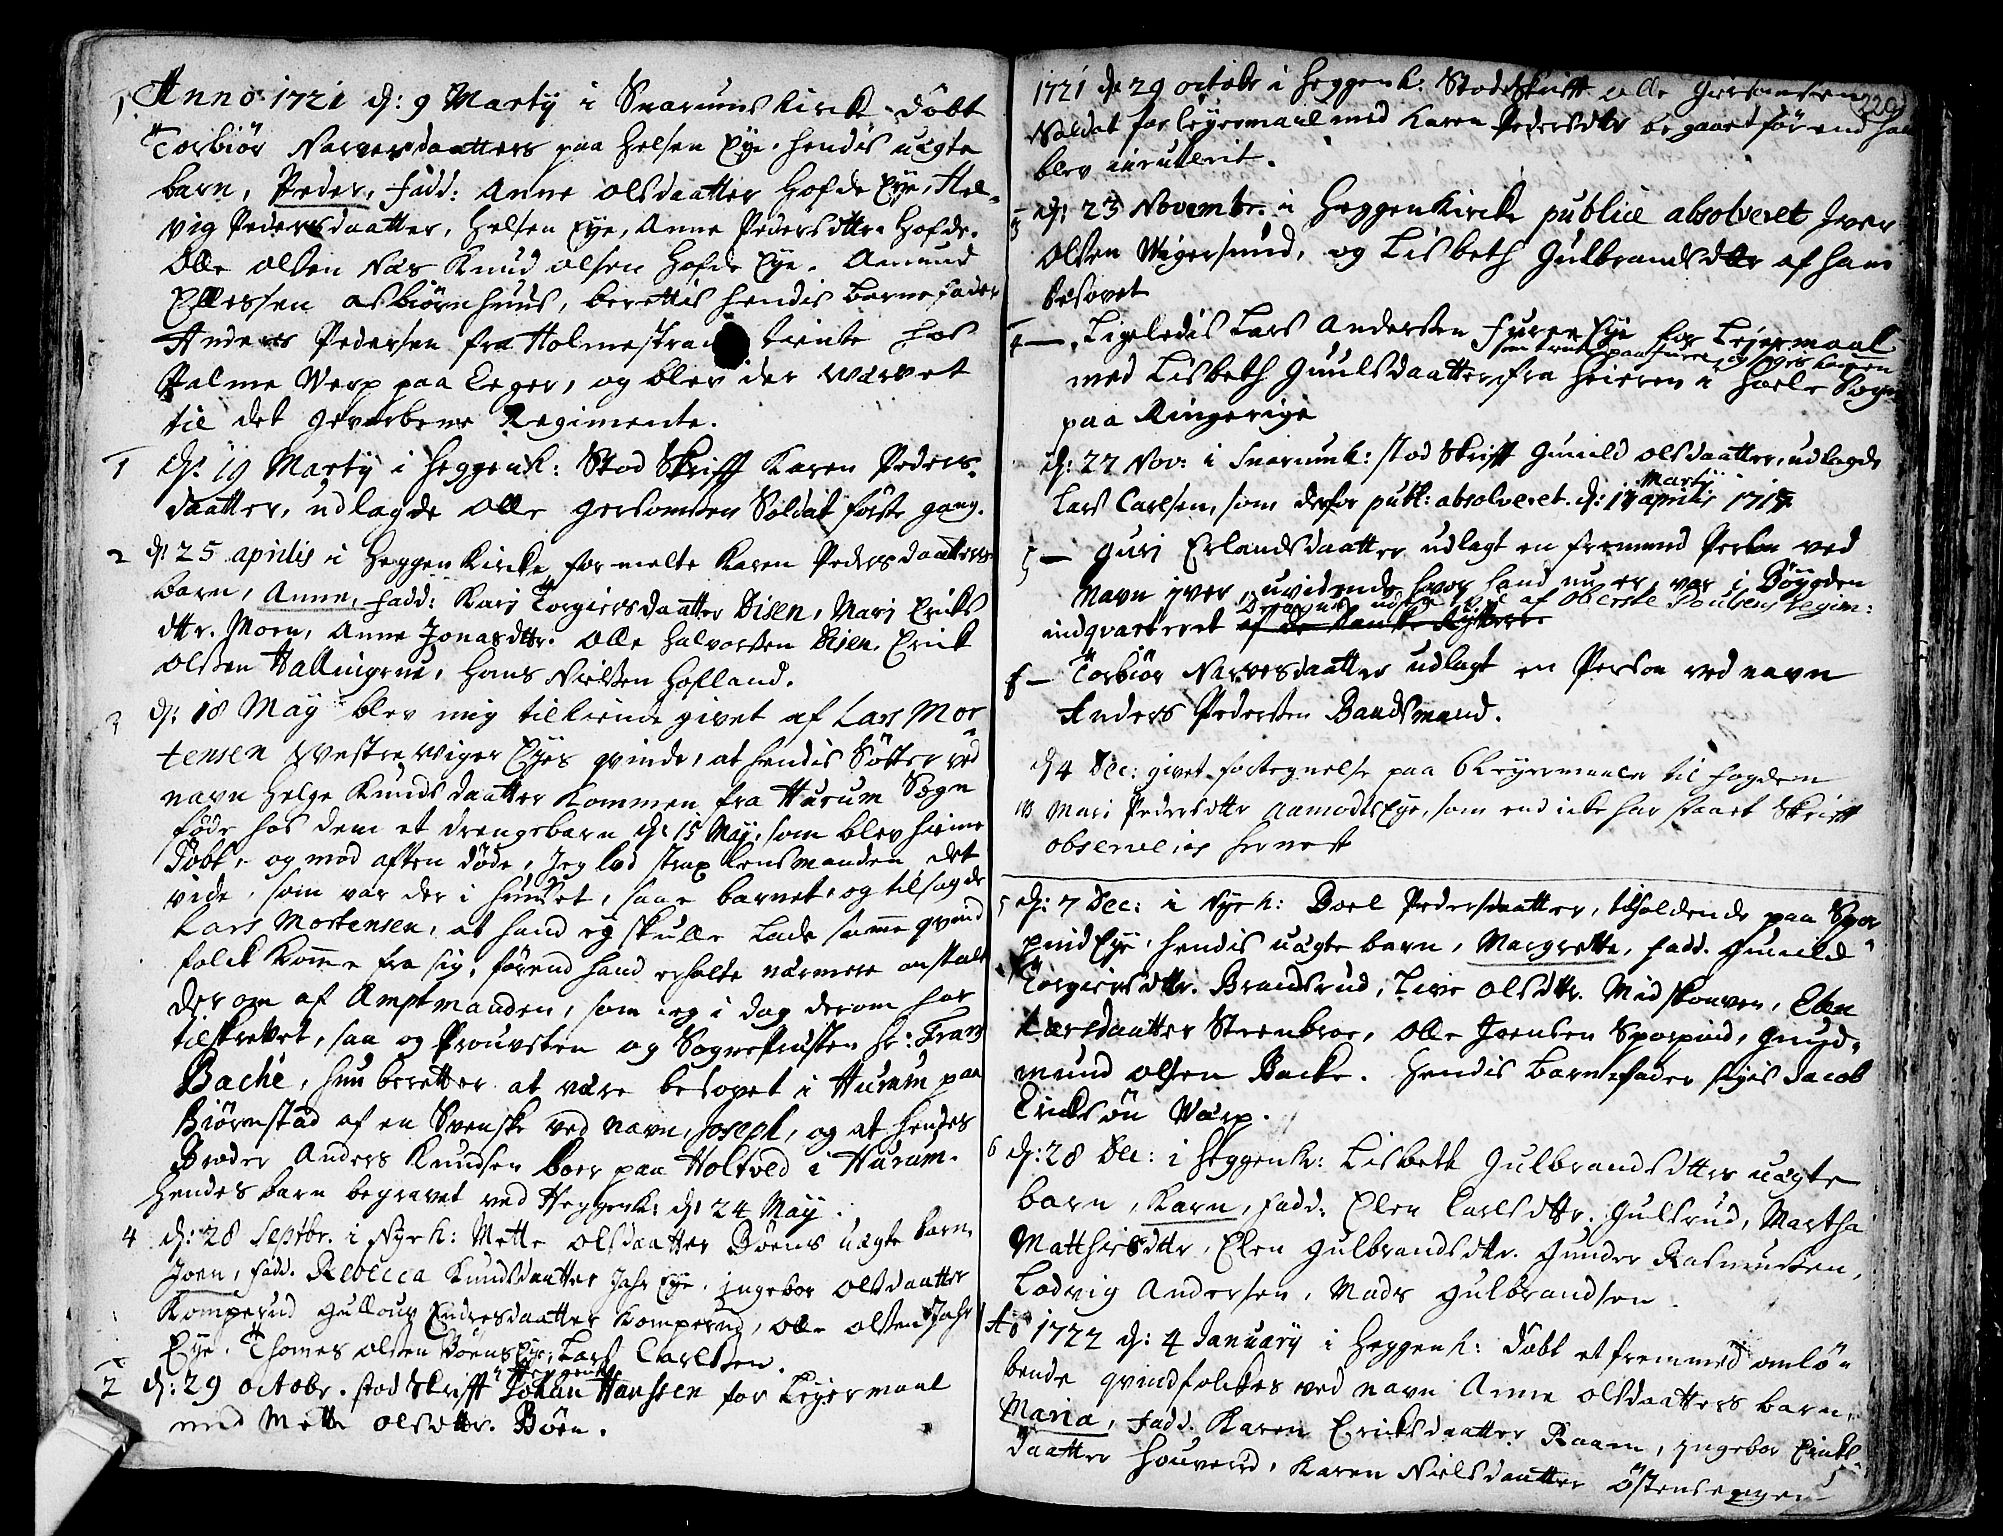 1 Anno 1721 d: 9 Martij i Snarums Kirck döbt
Torbiör Narvesdaatters paa Helsen Eye. hendis uægte
barn, Peder, Fadd: Anne Olsdaatter Hofde Eye, Hel-
vig Pedersdaatter, Helsen Eye, Anne Pedersdttr. Hofde.
Olle Olsen Næs Knud Olsen Hofde Eye. Amund
Ellessen Asbiörnhuus, berettis hendis barnefader
Anders Pedersen fra Holmestrand tiente hos
Palme Werp paa Eeger, og blev der Wærvet
til det gevorbene Regimente.
1 d: 19 Martij i Heggenk: Stod Skrifft Karen Peders-
daatter, udlagde Olle Gersonsen Soldat förste gang.
2 d: 25 aprilis i Heggen Kircke formelte Karen Pedersdaatters
barn, Anne, Fadd: Kari Torgiersdaatter Disen, Mari Ericks
dttr. Moen, Anne Jonasdttr. Olle Halvorsen Disen. Erick
Olsen Hallingrud, Hans Nielsen Hofland.
3 d: 18 May blev mig tilkiende givet af Lars Mor
tensen Westre Wiger Eyes qvinde, at hendis Söster ved
navn Helge Knudsdaatter kommen fra Hurum Sogn
föde hos dem et drengebarn d: 15 May, som blev hieme
döbt, og mod aften döde, Jeg lod strax lensmanden det
vide, som var der i huuset, saae barnet, og tilsagde
Lars Mortensen, at hand ey skulle lade samme qvind
folck komme fra sig, förend hand erholte nærmere anstalt
derom af Amptmanden, som ieg i dag derom har
tilskrevet, saa og Prouvsten og Sognepresten hr: Frantz
Bache, hun beretter at være besovet i Hurum paa
Biörnstad af en Svenske ved navn, Joseph, og at hendes
Broder Anders Knudsen boer paa Holtved i Hurum.
hendes barn begravet ved Heggenk: d: 24 May.
4 d: 28 Septbr. i Nyek: Mette Olsdaatter Böens uægte barn
Joen, Fadd. Rebecca Knudsdaatter Jahr Eye. Ingebor Olsdaatter
Komperud Gullour Endresdaatter Komperud, Olle Olsen Jahr
Eye. Thomes Olsen Böens Eye, Lars Carlsen.
2 d: 29 octobr. stod Skrifft Johan Hanssen for Leyermaal
med Mette Olsdttr. Böen.
220
1721 d: 29 octobr i Heggenk: Stod Skrifft Olle Gersonsen
Soldat for leyermaal med Karen Pedersdttr begaaet för end hand
blev inrullerit.
3 d: 23 Novembr. i Heggen Kircke publice absolveret Iver
Olsen Wigersund, og Lisbeth Gulbrandsdttr af ham
besovet
4 – Ligeledis Lars Andersen Furen Eye for Leyermaal
med Lisbeth Guulsdaatter fra Heieren i Hoele Sogn
paa Ringerige
d: 27 Nov: i Snarumk: stod Skrifft Gunild Olsdaatter, udlagde
Martij
Lars Carlsen, som derfor publ: absolveret. d: 17 aprilis 1717
5 – Guri Erlandsdaatter udlagt en fremmed Person ved
Navn Iver, uvidende hvor hand nu er, var i Bögden
af Oberste Regim:
indqvarteret af de Danske Ryttere
6 – Torbiör Narvesdaatter udlagt en Person ved navn
Anders Pedersen Baadsmand.
d: 4 Dec: givet fortegnelse paa 6 Leyermaaler til fogden
NB Mari Pedersdttr AamodtsEye, som end icke har staaet Skrifft
observeris hernest
5 d: 7 Dec: i Nyek: Boel Pedersdaatter, tilholdende paa Spor
pind Eye, hendis uægte barn, Margrette, Fadd. Gunild
Torgiersdttr. Brandsrud, Live Olsdttr. Midskouven, Elen
Larsdaatter Steenbroe, Olle Joensen Sporpind, Gud-
mund Olsen Backe. hendis barnefader siges Jacob
Ericksön Wærp.
6 d: 28 Dec: i Heggenk: Lisbeth Gulbrandsdtters uægte
barn, Karn, Fadd: Elen Carlsdttr. Gulsrud, Martha
Matthisdttr, Elen Gulbrandsdttr. Gunder Rasmussen,
Lodvig Andersen, Mads Gulbrandsen.
Ao 1722 d: 4 January i Heggenk: döbt et fremmed omlö-
bende qvindfolckes ved navn Anne Olsdaatters barn,
Maria, Fadd. Karen Ericksdaatter Raaen, Ingebor Ericks-
daatter Houverud, Karen Nielsdaatter Östensengen